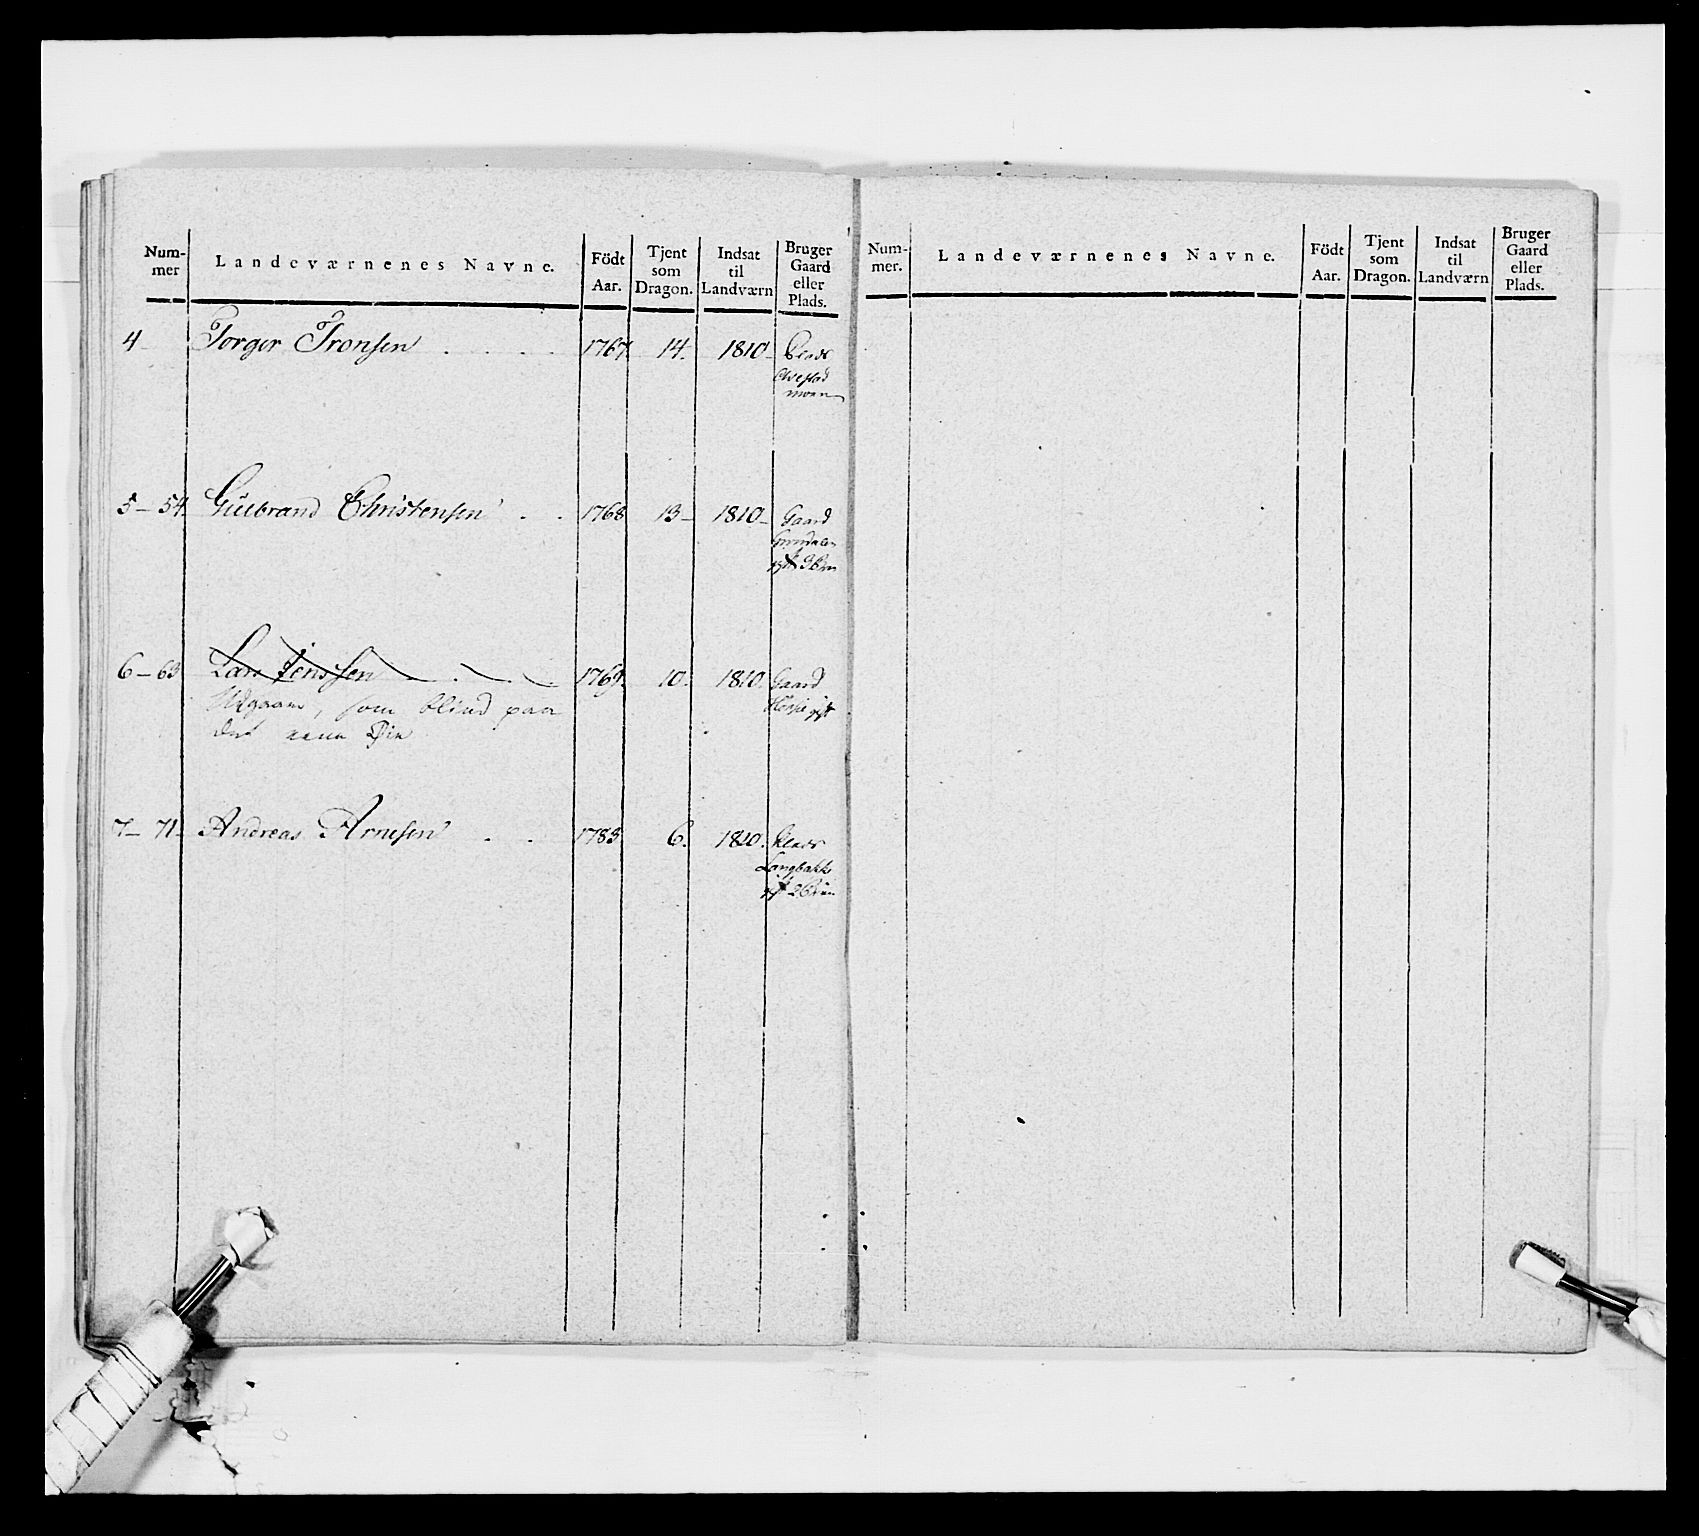 Num-
mer
Landeværnenes Navne.
Födt
Aar.
Tjent
som
Dragon.
Indsat
til
Landværn
Bruger
Gaard
eller
Plads.
4 Torger Tronsen 1767. 14. 1810
moen
5 - 54. Gulbrand Christensen 1768 13 - 1810 - Gaard
6 - 63 Lars Jenssen 1769. 10. 1810. Gaard
Udgaaer, som blind paa
det eene Øie
7 - 71 - Andreas Arnesen 1783 6. 1810. Plads
Langbakk
Num-
mer.
Landeværnenes Navne.
Födt
Aar.
Tjent
som
Dragon.
Indsat
til
Landværn
Bruger
Gaard
eller
Plads.